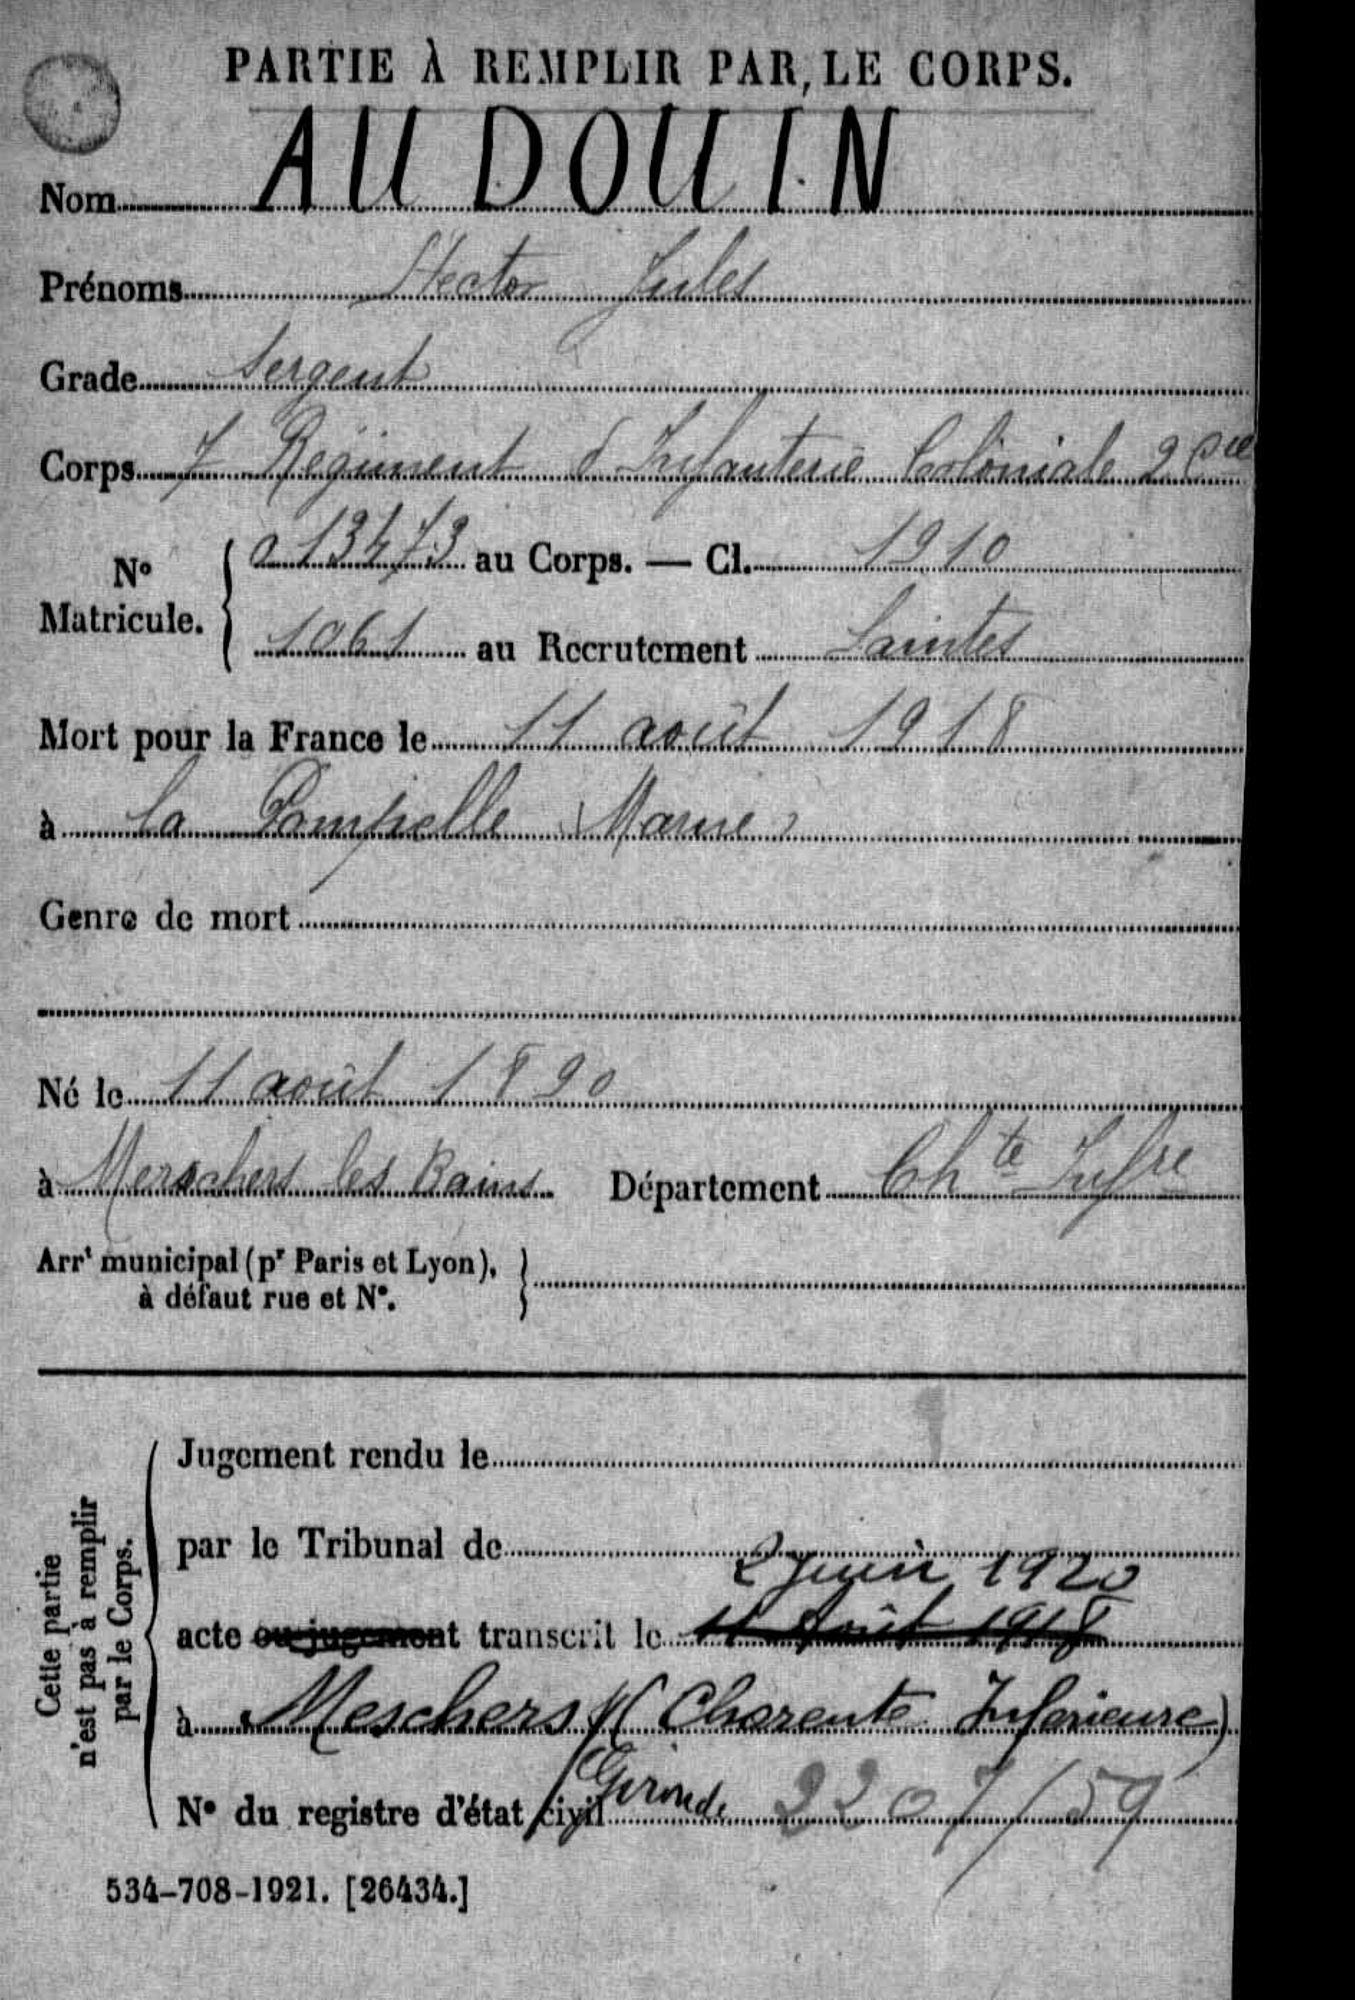 PARTIE À REMPLIR PAR LE CORPS.
Nom AUDOUIN
Prénoms Hector Jules
Grade Sergent
Corps 7 Régiment d'Infanterie Coloniale 2 Cie
N° Matricule. 013473 au Corps. — Cl. 1910
1061 au Recrutement Saintes
Mort pour la France le 11 août 1918
à la Pompelle (Marne)
Genre de mort
Né le 11 août 1890
à Merschers les Bains Département Chte Infre
Arrt municipal (pr Paris et Lyon), à défaut rue et N°.
Cette partie n'est pas à remplir par le Corps.
Jugement rendu le
par le Tribunal de
2 Juin 1920
acte ou jugement transcrit le 11 Août 1918
à Meschers s/ (Charente Inférieure)
Gironde
N° du registre d'état civil 2207/59
534-708-1921. [26434.]